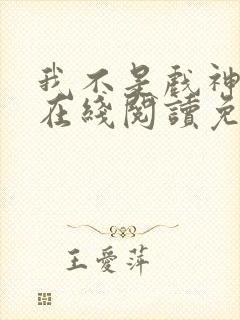 我不是戲神
在綫閱讀免
王愛萍